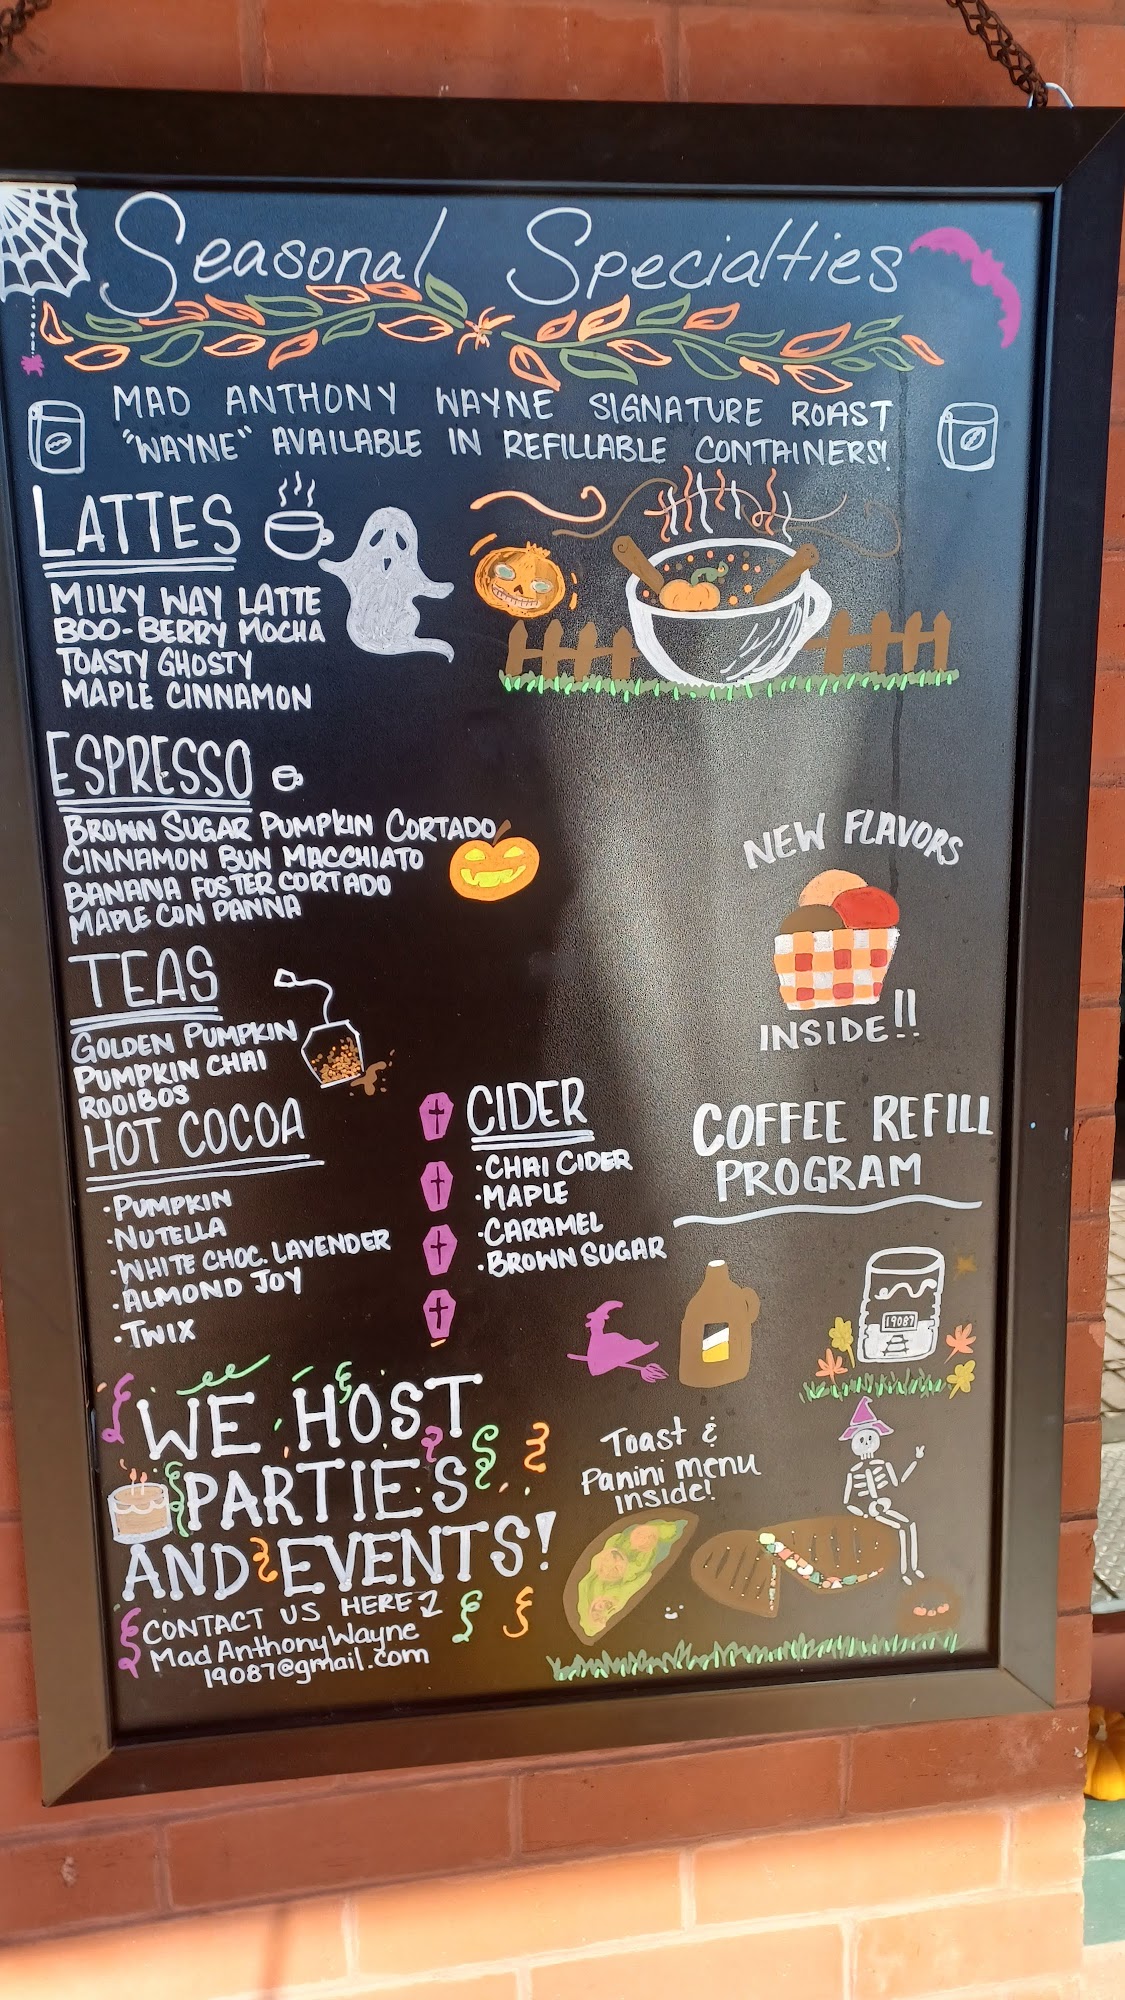 Seasonal Specialties
MAD ANTHONY WAYNE SIGNATURE ROAST
"WAYNE" AVAILABLE IN REFILLABLE CONTAINERS!
LATTES
MILKY WAY LATTE
BOO-BERRY MOCHA
TOASTY GHOSTY
MAPLE CINNAMON
ESPRESSO
BROWN SUGAR PUMPKIN CORTADO
CINNAMON BUN MACCHIATO
BANANA FOSTER CORTADO
MAPLE CON PANNA
NEW FLAVORS
INSIDE!!
TEAS
GOLDEN PUMPKIN
PUMPKIN CHAI
ROOIBOS
HOT COCOA
·PUMPKIN
·NUTELLA
·WHITE CHOC. LAVENDER
·ALMOND JOY
·TWIX
CIDER
·CHAI CIDER
·MAPLE
·CARAMEL
·BROWN SUGAR
COFFEE REFILL
PROGRAM
19087
WE HOST
PARTIES
AND EVENTS!
CONTACT US HERE
MadAnthonyWayne
19087@gmail.com
Toast &
Panini menu
inside!